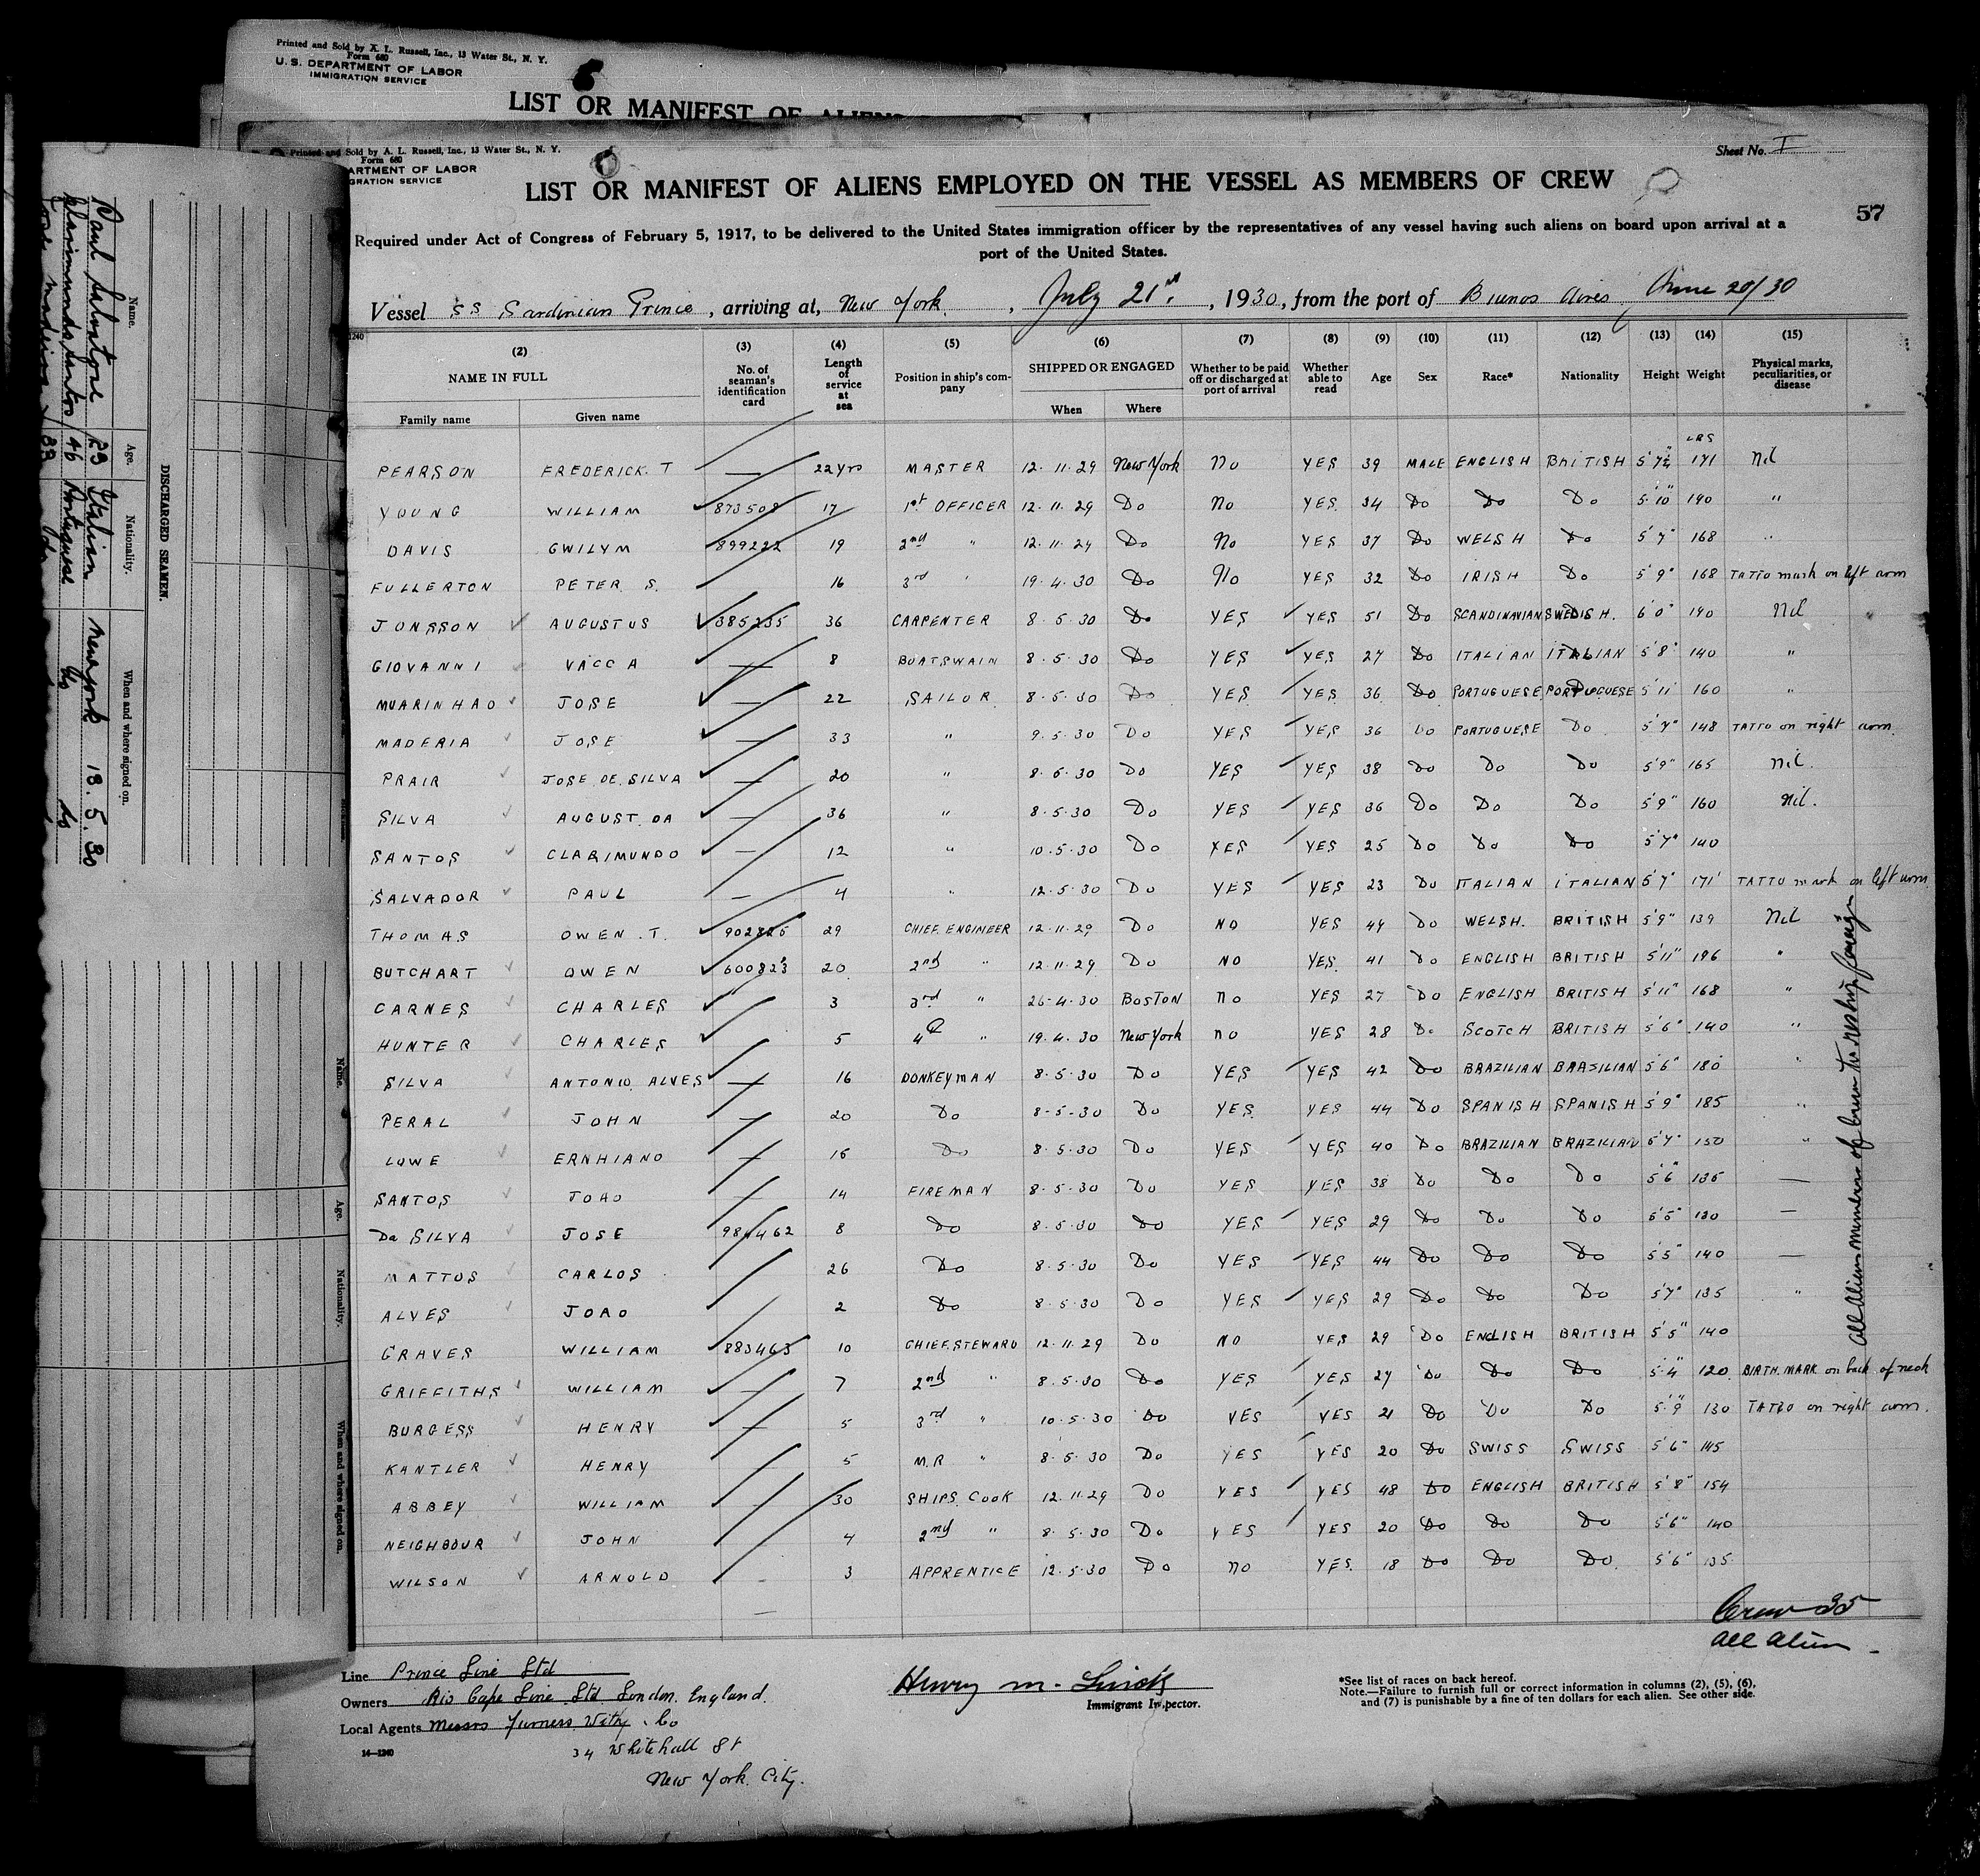 Printed and Sold by A. L. Russell, Inc., 13 Water St., N. Y.
Form 680
U. S. DEPARTMENT OF LABOR
IMMIGRATION SERVICE
LIST OR MANIFEST OF ALIENS
Printed and Sold by A. L. Russell, Inc., 13 Water St., N. Y.
Form 680
ARTMENT OF LABOR
GRATION SERVICE
Sheet No. I
LIST OR MANIFEST OF ALIENS EMPLOYED ON THE VESSEL AS MEMBERS OF CREW
57
Required under Act of Congress of February 5, 1917, to be delivered to the United States immigration officer by the representatives of any vessel having such aliens on board upon arrival at a
port of the United States.
Vessel SS Sardinian Prince, arriving at, New York, July 21st, 1930, from the port of Buenos Aires, June 20/30
1240
(2) (3) (4) (5) (6) (7) (8) (9) (10) (11) (12) (13) (14) (15)
NAME IN FULL No. of seaman's identification card Length of service at sea Position in ship's company SHIPPED OR ENGAGED Whether to be paid off or discharged at port of arrival Whether able to read Age Sex Race* Nationality Height Weight Physical marks, peculiarities, or disease
Family name Given name When Where
LBS
PEARSON FREDERICK T — 22 yrs MASTER 12.11.29 New York No YES 39 MALE ENGLISH BRITISH 5'7½" 171 Nil
YOUNG WILLIAM 873508 17 1st OFFICER 12.11.29 Do No YES 34 Do Do Do 5'10" 190 "
DAVIS GWILYM 899222 19 2nd " 12.11.29 Do No YES 37 Do WELSH Do 5'7" 168 "
FULLERTON PETER S. 16 3rd " 19.4.30 Do No YES 32 Do IRISH Do 5'9" 168 TATTO mark on left arm
JONSSON AUGUSTUS 385235 36 CARPENTER 8.5.30 Do YES YES 51 Do SCANDINAVIAN SWEDISH. 6'0" 190 Nil
GIOVANNI VACCA — 8 BOATSWAIN 8.5.30 Do YES YES 27 Do ITALIAN ITALIAN 5'8" 140 "
MUARINHAO JOSE — 22 SAILOR 8.5.30 Do YES YES 36 Do PORTUGUESE PORTUGUESE 5'11" 160 "
MADERIA JOSE — 33 " 9.5.30 Do YES YES 36 Do PORTUGUESE Do 5'7" 148 TATTO on right arm.
PRAIR JOSE DE SILVA — 20 " 8.5.30 Do YES YES 38 Do Do Do 5'9" 165 Nil.
SILVA AUGUST DA — 36 " 8.5.30 Do YES YES 36 Do Do Do 5'9" 160 Nil.
SANTOS CLARIMUNDO — 12 " 10.5.30 Do YES YES 25 Do Do Do 5'7" 140
SALVADOR PAUL — 4 " 12.5.30 Do YES YES 23 Do ITALIAN ITALIAN 5'7" 171 TATTO mark on left arm
THOMAS OWEN T. 902826 29 CHIEF ENGINEER 12.11.29 Do NO YES 44 Do WELSH. BRITISH 5'9" 139 Nil
BUTCHART OWEN 600823 20 2nd " 12.11.29 Do NO YES. 41 Do ENGLISH BRITISH 5'11" 196 "
CARNES CHARLES 3 3rd " 26.4.30 BOSTON no YES 27 Do ENGLISH BRITISH 5'11" 168 "
HUNTER CHARLES 5 4th " 19.4.30 New York no YES 28 Do SCOTCH BRITISH 5'6" 140 "
SILVA ANTONIO ALVES — 16 DONKEYMAN 8.5.30 Do YES YES 42 Do BRAZILIAN BRASILIAN 5'6" 180 "
PERAL JOHN — 20 Do 8-5-30 Do YES YES 44 Do SPANISH SPANISH 5'9" 185 "
LOWE ERNHIANO — 16 Do 8.5.30 Do YES YES 40 Do BRAZILIAN BRAZILIAN 5'7" 150 "
SANTOS JOAO — 14 FIREMAN 8.5.30 Do YES YES 38 Do Do Do 5'6" 135 —
Da SILVA JOSE 984462 8 Do 8.5.30 Do YES YES 29 Do Do Do 5'5" 130 —
MATTOS CARLOS 26 Do 8.5.30 Do YES YES 44 Do Do Do 5'5" 140 —
ALVES JOAO 2 Do 8.5.30 Do YES YES 29 Do Do Do 5'7" 135 "
GRAVES WILLIAM 883463 10 CHIEF STEWARD 12.11.29 Do NO YES 29 Do ENGLISH BRITISH 5'5" 140
GRIFFITHS WILLIAM — 7 2nd " 8.5.30 Do YES YES 27 Do Do Do 5'4" 120 BIRTH MARK on back of neck
BURGESS HENRY — 5 3rd " 10.5.30 Do YES YES 21 Do Do Do 5'9" 130 TATTO on right arm.
KANTLER HENRY 5 M.R " 8.5.30 Do YES YES 20 Do SWISS SWISS 5'6" 145
ABBEY WILLIAM 30 SHIPS COOK 12.11.29 Do YES YES 48 Do ENGLISH BRITISH 5'8" 154
NEIGHBOUR JOHN 4 2nd " 8.5.30 Do YES YES 20 Do Do Do 5'6" 140
WILSON ARNOLD 3 APPRENTICE 12.5.30 Do NO YES. 18 Do Do Do 5'6" 135
All Alien members of crew to reship foreign
Crew 35
All Alien
Line Prince Line Ltd
Owners Rio Cape Line Ltd London. England.
Local Agents Messrs Furness Withy Co
34 Whitehall St
New York City.
14—1240
Henry M.
Immigrant Inspector.
*See list of races on back hereof.
Note.—Failure to furnish full or correct information in columns (2), (5), (6),
and (7) is punishable by a fine of ten dollars for each alien. See other side.
DISCHARGED SEAMEN.
Name. Age. Nationality. When and where signed on.
Paul 23 Italian New York 13.5.30
Clarimundo Santos 46 Portuguese do do
Jose Madeira 39
Name. Age. Nationality. When and where signed on.